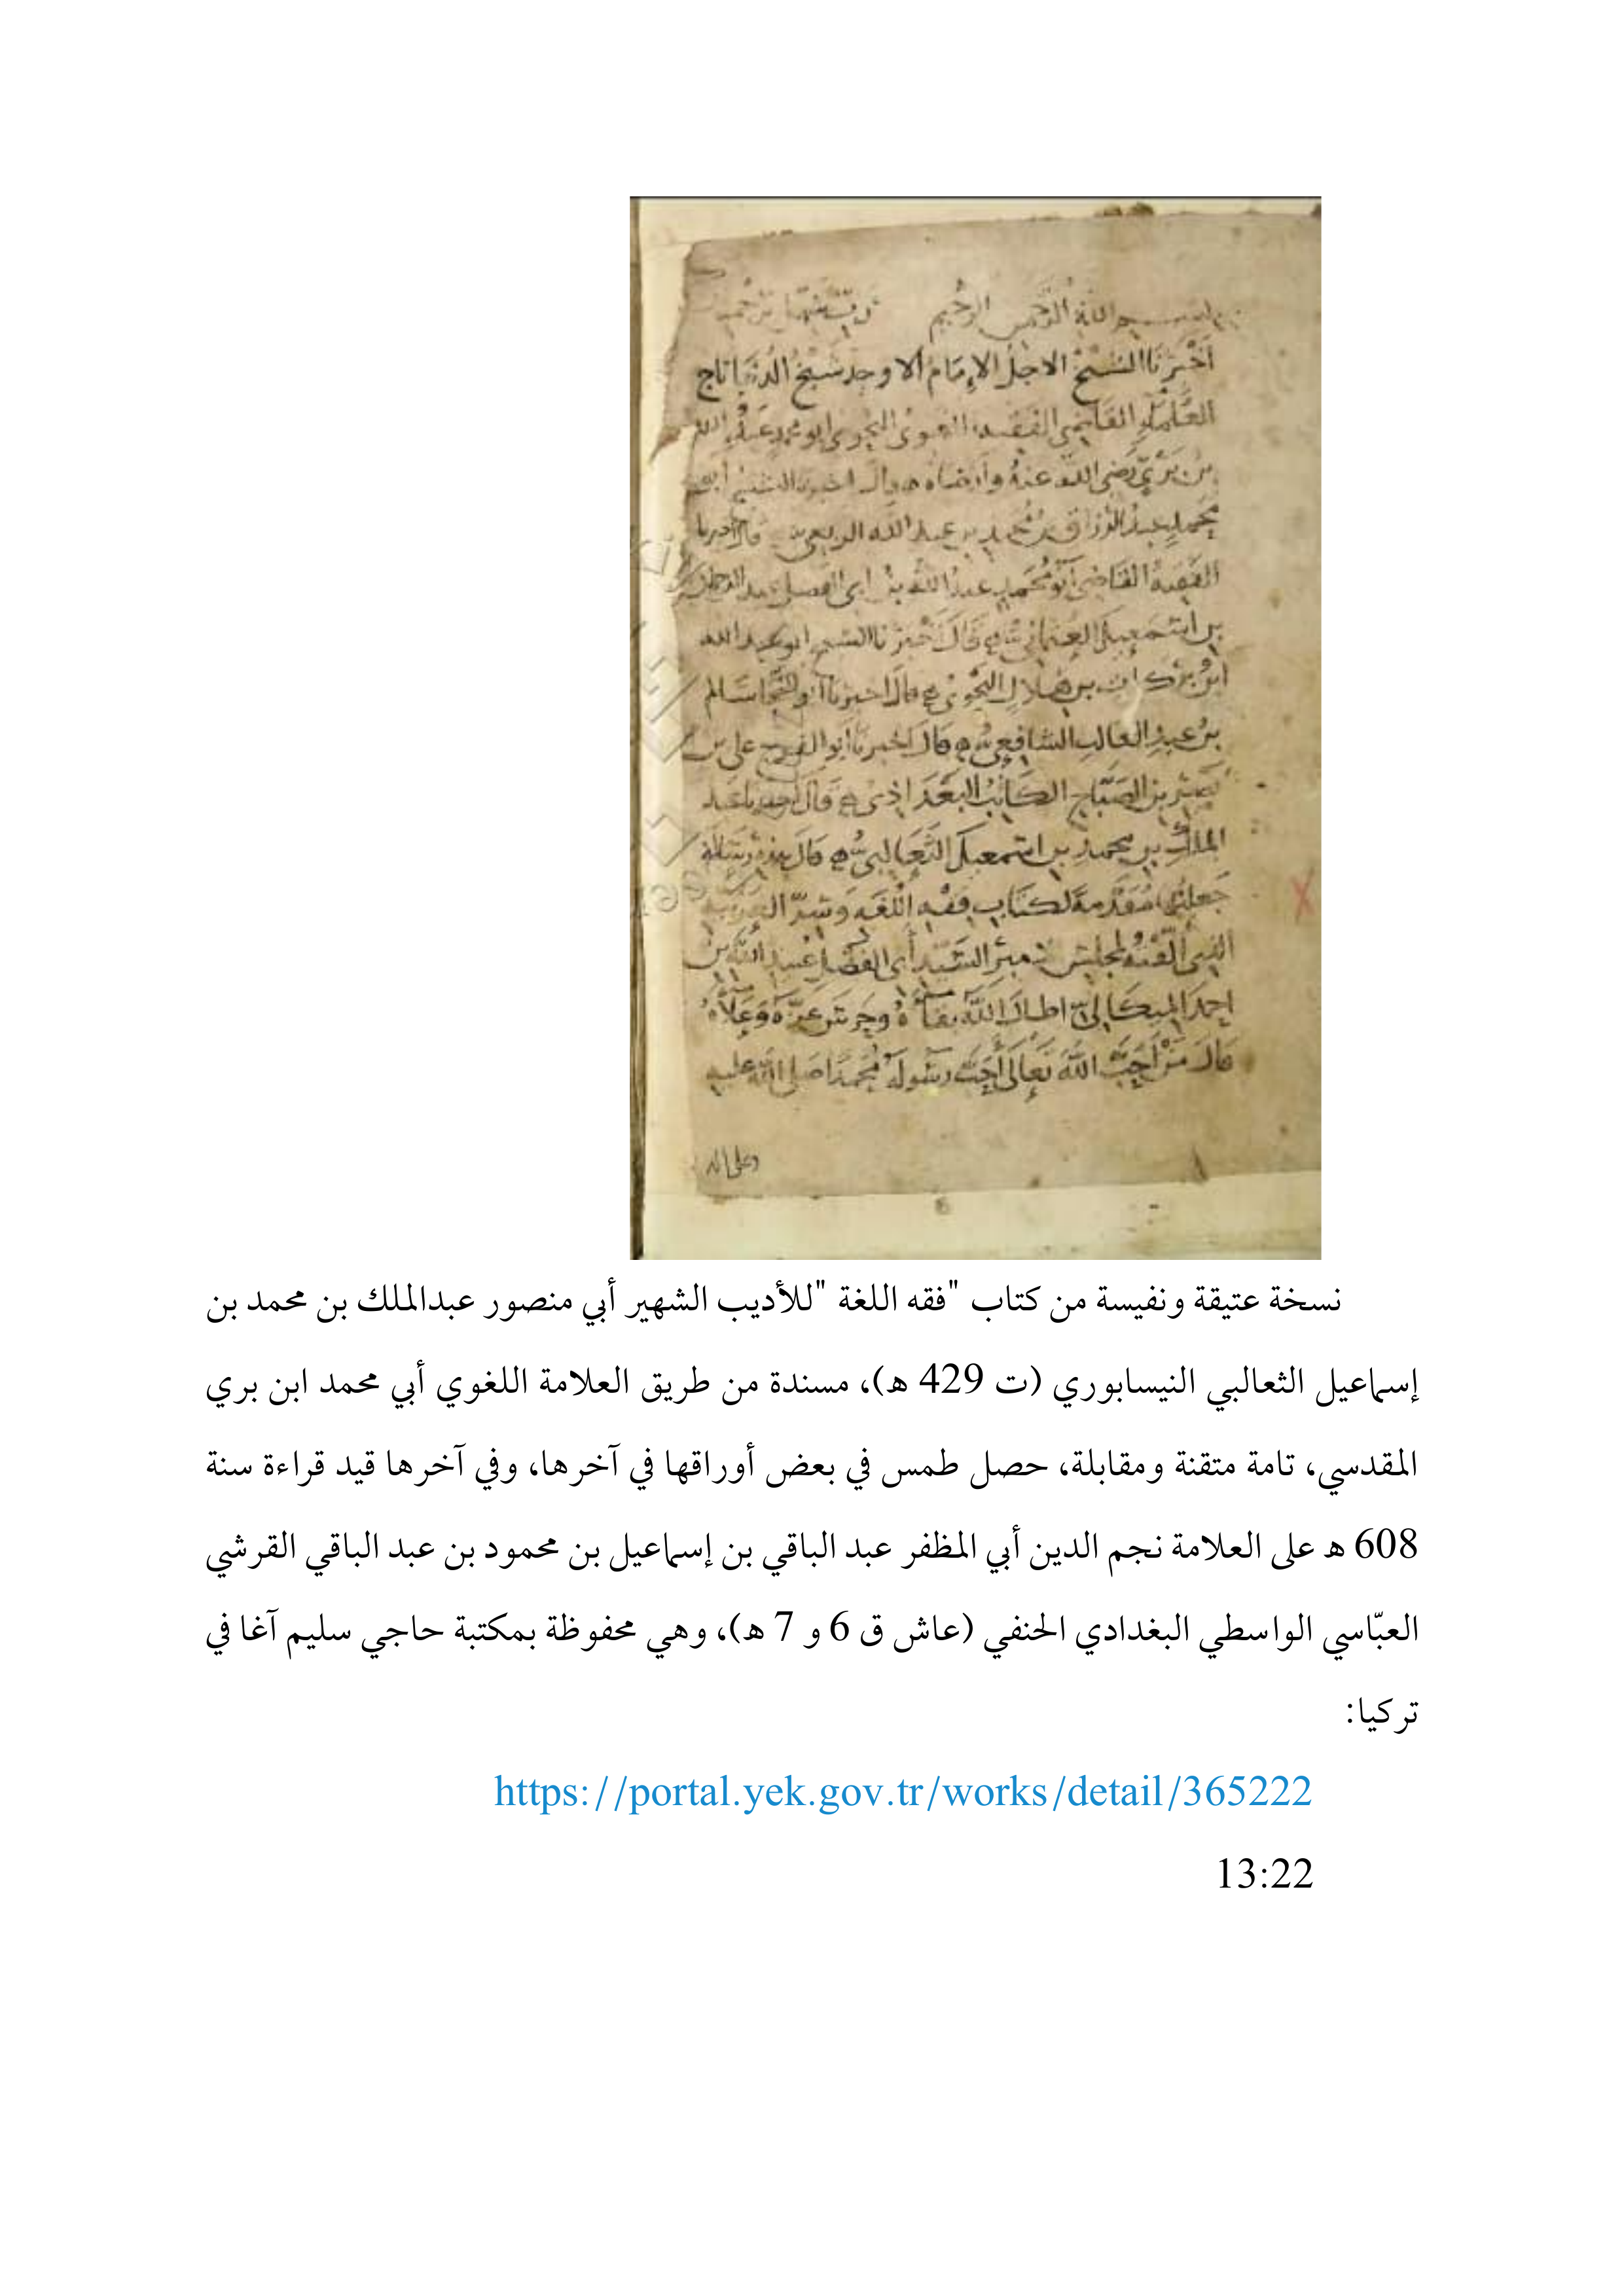 بسم الله الرحمن الرحيم
أخبرنا الشيخ الاجل الامام الاوحد شيخ الدنيا تاج
العلماء القاضي الفقيه اللغوي النحوي ابو محمد عبد الله
بن بري رضي الله عنه وأرضاه قال اخبرنا الشيخ أبو
محمد عبد الرزاق بن محمد بن عبد الله
الفقيه القاضي أبو محمد عبد الله بن ابي الفضل عبد الرحمن
بن اسمعيل العثماني قال أخبرنا الشيخ ابو عبد الله
بركات بن هلال النحوي قال اخبرنا أبو سالم
بن عبد الغالب الشافعي قال اخبرنا أبو الفرج علي بن
نصر بن الصباح الكاتب البغداذي قال عبد
الملك بن محمد بن اسمعيل الثعالبي قال هذه رسالة
جعلتها مقدمة لكتاب فقه اللغة وسر العربية
الذي ألفته لمجلس الامير السيد أبي الفضل عبيد الله بن
احمد الميكالي اطال الله بقاءه وحرس عزه وعلاه
قال من أحب الله تعالى أحب رسوله محمدا صلى الله عليه
وعلى اله
نسخة عتيقة ونفيسة من كتاب "فقه اللغة "للأديب الشهير أبي منصور عبدالملك بن محمد بن
إسماعيل الثعالبي النيسابوري (ت 429 ه)، مسندة من طريق العلامة اللغوي أبي محمد ابن بري
المقدسي، تامة متقنة ومقابلة، حصل طمس في بعض أوراقها في آخرها، وفي آخرها قيد قراءة سنة
608 ه على العلامة نجم الدين أبي المظفر عبد الباقي بن إسماعيل بن محمود بن عبد الباقي القرشي
العبّاسي الواسطي البغدادي الحنفي (عاش ق 6 و 7 ه)، وهي محفوظة بمكتبة حاجي سليم آغا في
تركيا:
https://portal.yek.gov.tr/works/detail/365222
13:22